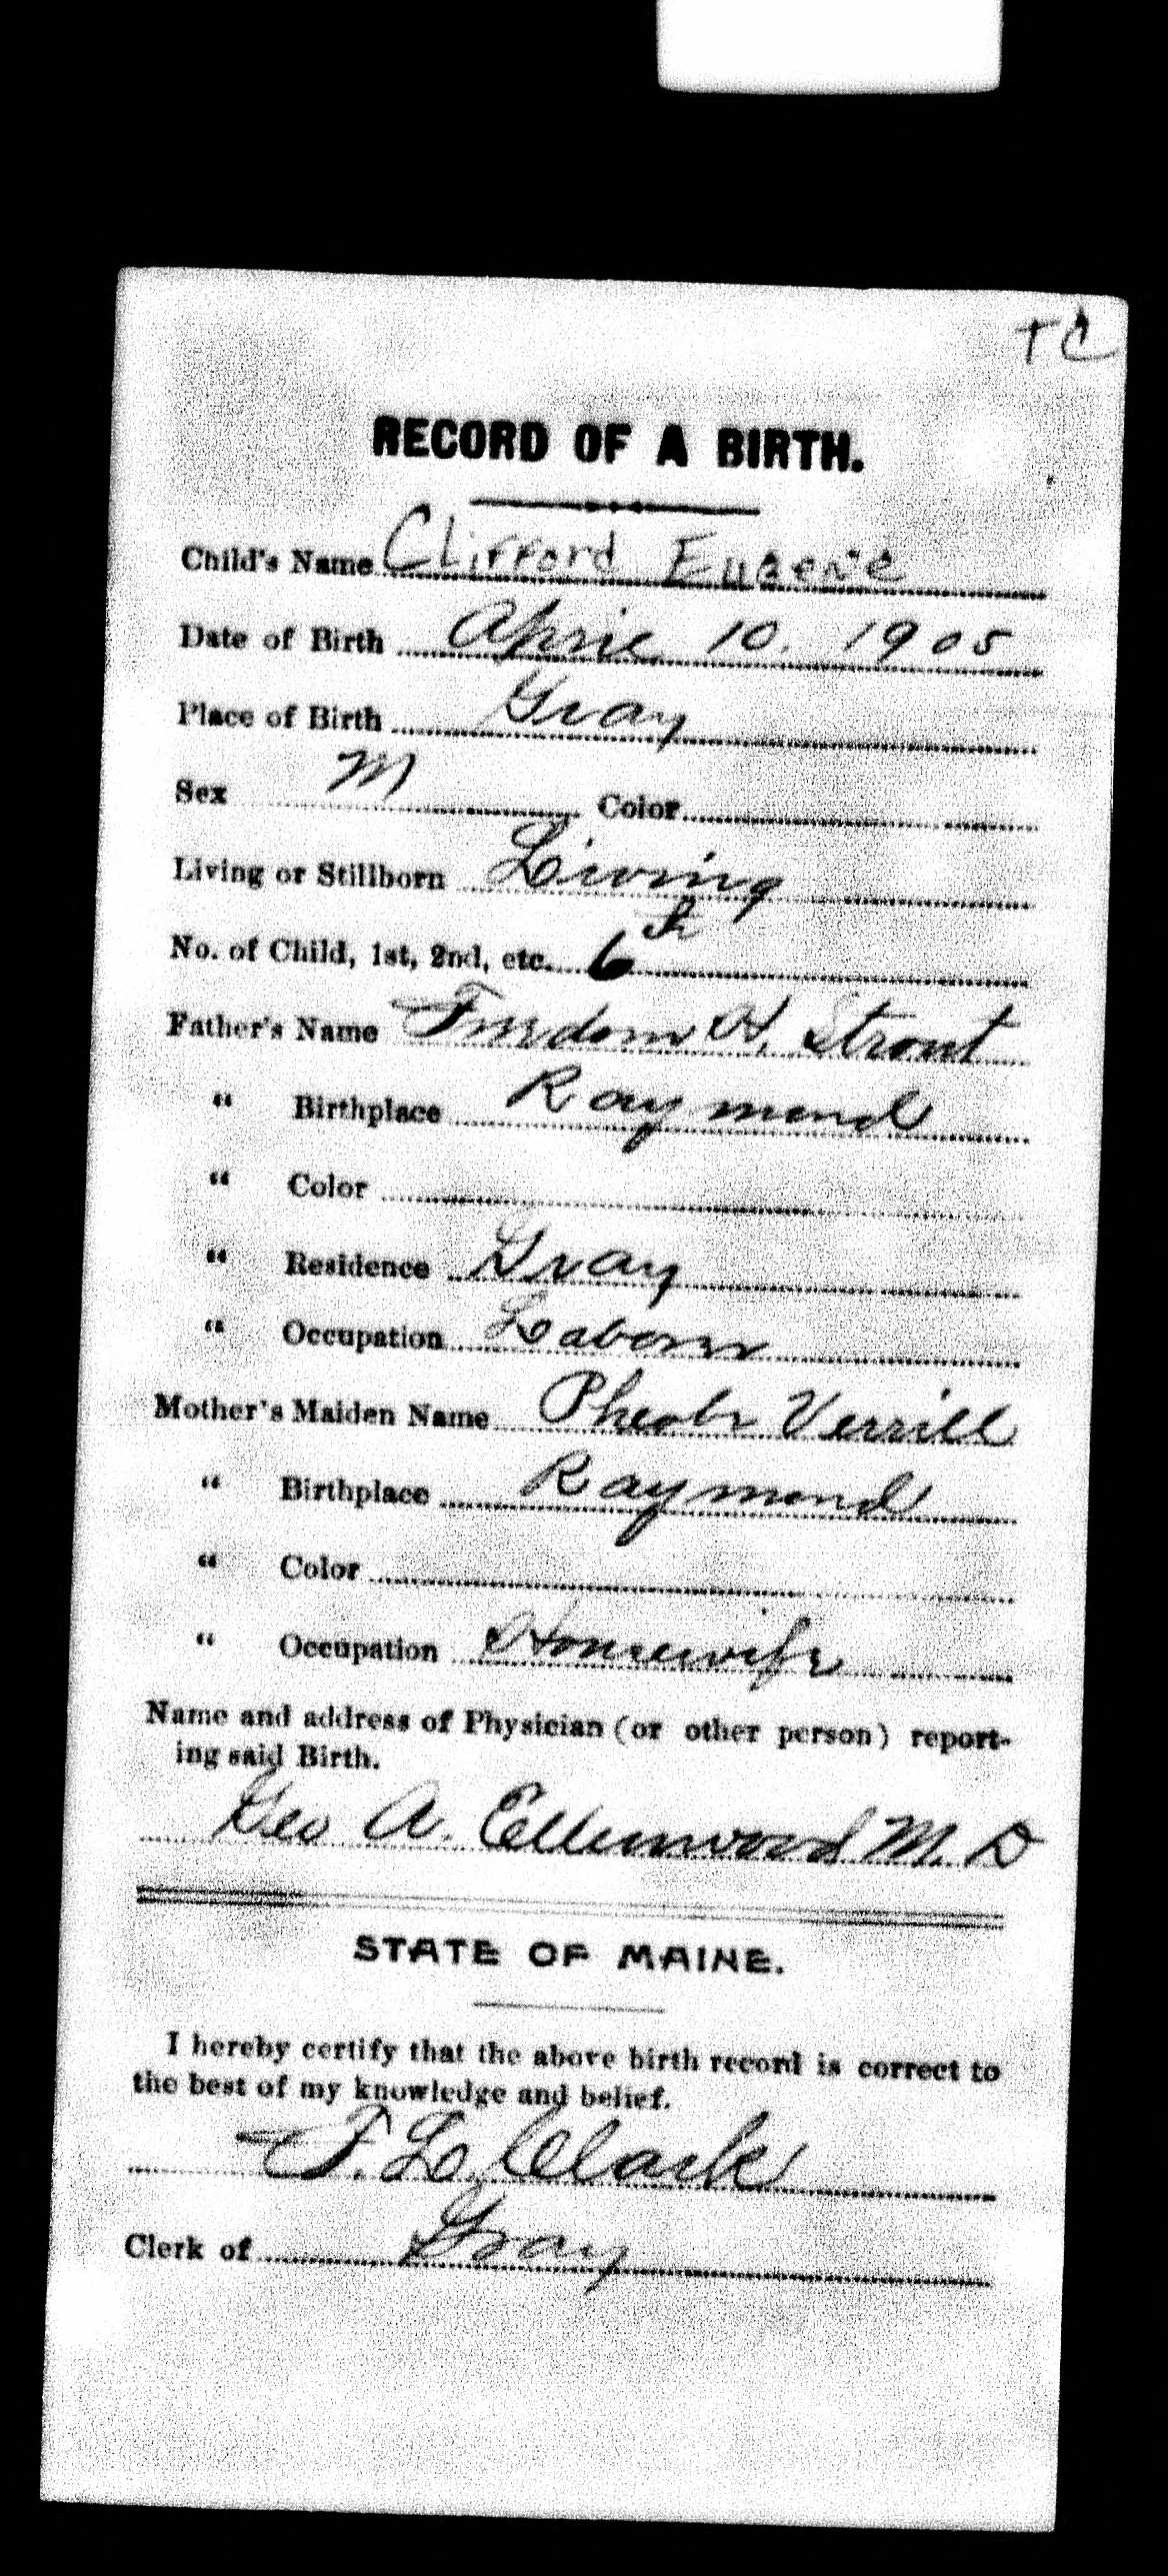 TC
RECORD OF A BIRTH.
Child's Name Clifford Eugene
Date of Birth April 10. 1905
Place of Birth Gray
Sex M Color
Living or Stillborn Living
No. of Child, 1st, 2nd, etc. 6th
Father's Name Freedom H. Strout
" Birthplace Raymond
" Color
" Residence Gray
" Occupation Laborer
Mother's Maiden Name Pheobe Verrill
" Birthplace Raymond
" Color
" Occupation Housewife
Name and address of Physician (or other person) report-
ing said Birth.
Geo A. Ellenwood M. D
STATE OF MAINE.
I hereby certify that the above birth record is correct to
the best of my knowledge and belief.
F. L. Clark
Clerk of Gray